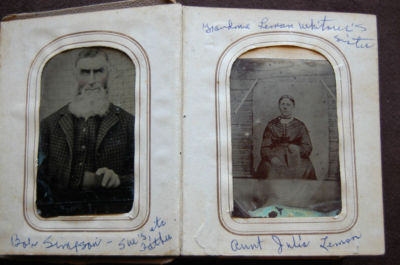 Grandma Lemon Whitner's
sister
Bob Simpson - Sue's, etc
Father
Aunt Julie Lemon